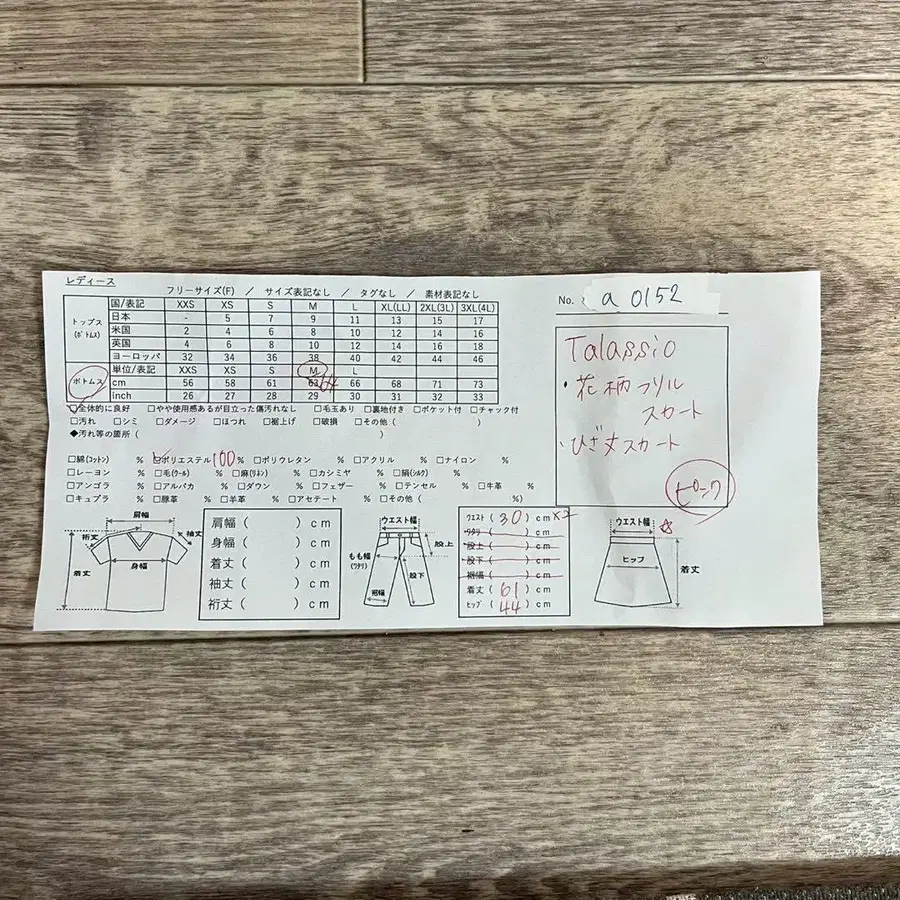 レディース
フリーサイズ(F) / サイズ表記なし / タグなし / 素材表記なし
国/表記 XXS XS S M L XL(LL) 2XL(3L) 3XL(4L)
トップス (ボトムス)
日本 - 5 7 9 11 13 15 17
米国 2 4 6 8 10 12 14 16
英国 4 6 8 10 12 14 16 18
ヨーロッパ 32 34 36 38 40 42 44 46
単位/表記 XXS XS S M L
ボトムス
cm 56 58 61 63 64 66 68 71 73
inch 26 27 28 29 30 31 32 33
□全体的に良好 □やや使用感あるが目立った傷汚れなし □毛玉あり □裏地付き □ポケット付 □チャック付
□汚れ □シミ □ダメージ □ほつれ □裾上げ □破損 □その他 ( )
◆汚れ等の箇所 ( )
□綿(コットン) % □ポリエステル100% □ポリウレタン % □アクリル % □ナイロン %
□レーヨン % □毛(ウール) % □麻(リネン) % □カシミヤ % □絹(シルク) %
□アンゴラ % □アルパカ % □ダウン % □フェザー % □テンセル % □牛革 %
□キュプラ % □豚革 % □羊革 % □アセテート % □その他 ( %)
No. a 0152
Talassio
・花柄フリル
スカート
・ひざ丈スカート
ピンク
肩幅
裄丈
袖丈
着丈
身幅
肩幅 ( ) cm
身幅 ( ) cm
着丈 ( ) cm
袖丈 ( ) cm
裄丈 ( ) cm
ウエスト幅
股上
もも幅
(ワタリ)
股下
裾幅
ウエスト ( 30 ) cm×2
ワタリ ( ) cm
股上 ( ) cm
股下 ( ) cm
裾幅 ( ) cm
着丈 ( 61 ) cm
ヒップ ( 44 ) cm
ウエスト幅 ☆
ヒップ
着丈